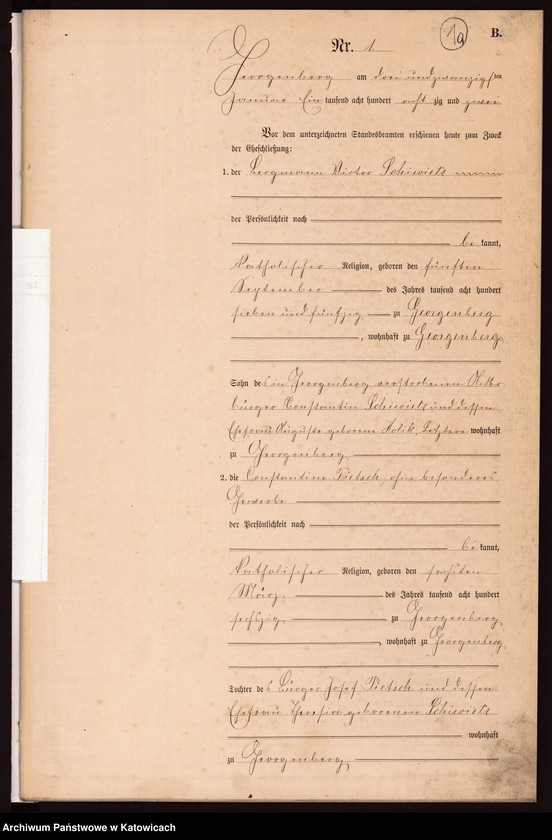 B.
Nr. 1
1a
Georgenberg am drei und zwanzigsten
Januar Ein tausend acht hundert acht zig und zwei
Vor dem unterzeichneten Standesbeamten erschienen heute zum Zweck
der Eheschließung:
1. der Bergmann Victor Schiwietz
der Persönlichkeit nach
be kannt,
katholischer Religion, geboren den fünften
September des Jahres tausend acht hundert
sieben und fünfzig zu Georgenberg
, wohnhaft zu Georgenberg
Sohn des in Georgenberg verstorbenen Acker
bürger Constantin Schiwietz und dessen
Ehefrau Auguste geborene Kolik, Letztere wohnhaft
zu Georgenberg
2. die Constantine Pietsch, ohne besonderes
Gewerbe
der Persönlichkeit nach
be kannt,
katholischer Religion, geboren den sechsten
März des Jahres tausend acht hundert
sechszig zu Georgenberg
, wohnhaft zu Georgenberg
Tochter des Bürger Josef Pietsch und dessen
Ehefrau Theresia geborenen Schiwietz
wohnhaft
zu Georgenberg
Archiwum Państwowe w Katowicach